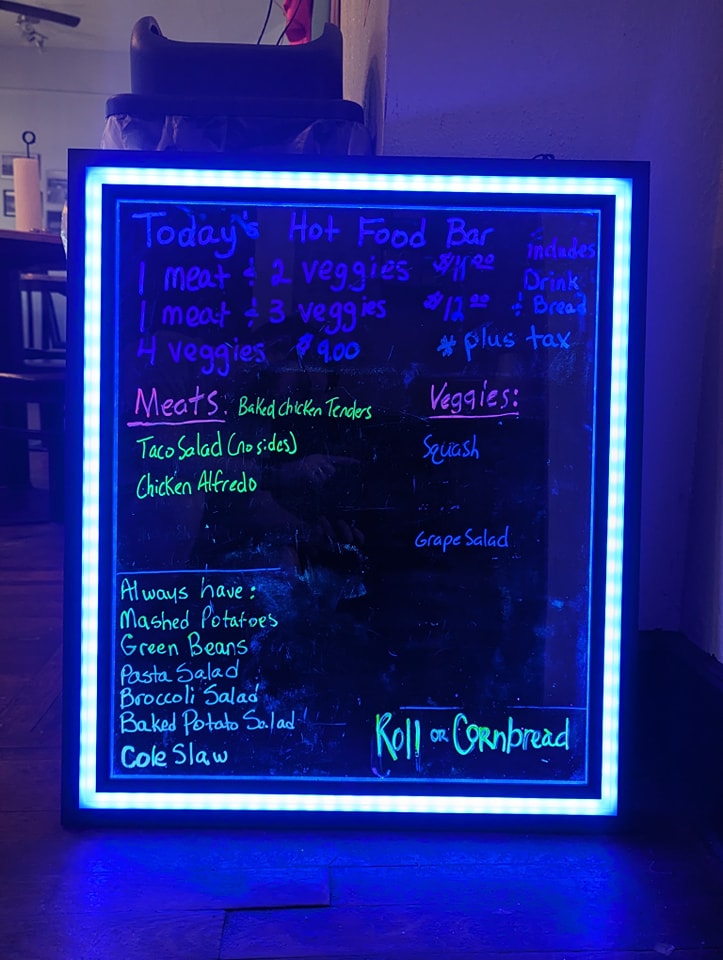 Today's Hot Food Bar
1 meat & 2 veggies $11.00
1 meat & 3 veggies $12.00
4 veggies $9.00
includes
Drink
& Bread
* plus tax
Meats: Baked chicken Tenders
Taco Salad (no sides)
Chicken Alfredo
Veggies:
Squash
Grape Salad
Always have:
Mashed Potatoes
Green Beans
Pasta Salad
Broccoli Salad
Baked Potato Salad
Cole Slaw
Roll or Cornbread